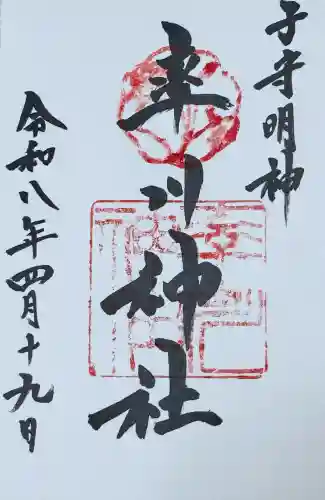 子守明神
率川神社
令和八年四月十九日